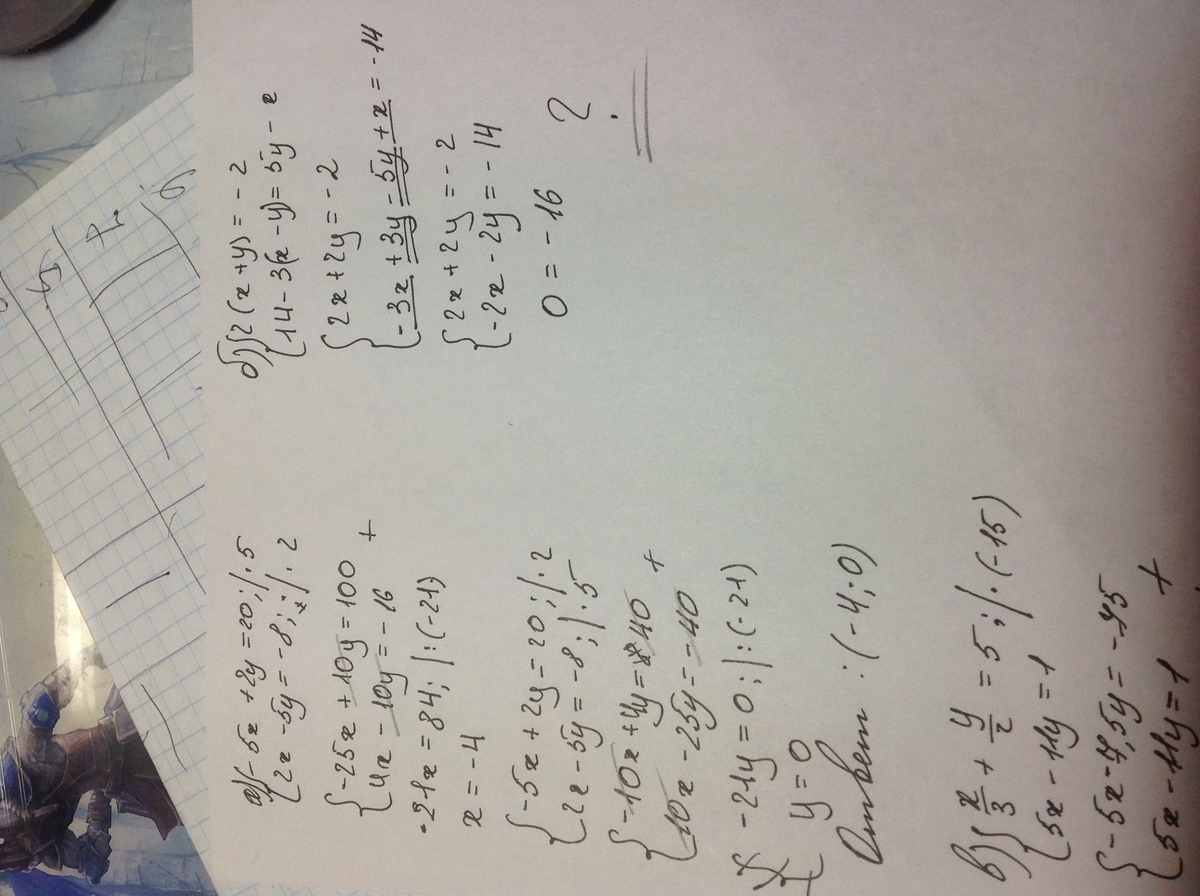 а) { -5x + 2y = 20; |·5
2x - 5y = -8; |·2
{ -25x + 10y = 100
4x - 10y = -16 +
-21x = 84; |:(-21)
x = -4
{ -5x + 2y = 20; |·2
2x - 5y = -8; |·5
{ -10x + 4y = 40
10x - 25y = -40 +
-21y = 0; |:(-21)
y = 0
Ответ: (-4; 0)
в) { x/3 + y/2 = 5; |·(-15)
5x - 11y = 1
{ -5x - 7,5y = -75
5x - 11y = 1 +
б) { 2(x + y) = -2
14 - 3(x - y) = 5y - x
{ 2x + 2y = -2
-3x + 3y - 5y + x = -14
{ 2x + 2y = -2
-2x - 2y = -14
0 = -16 ?